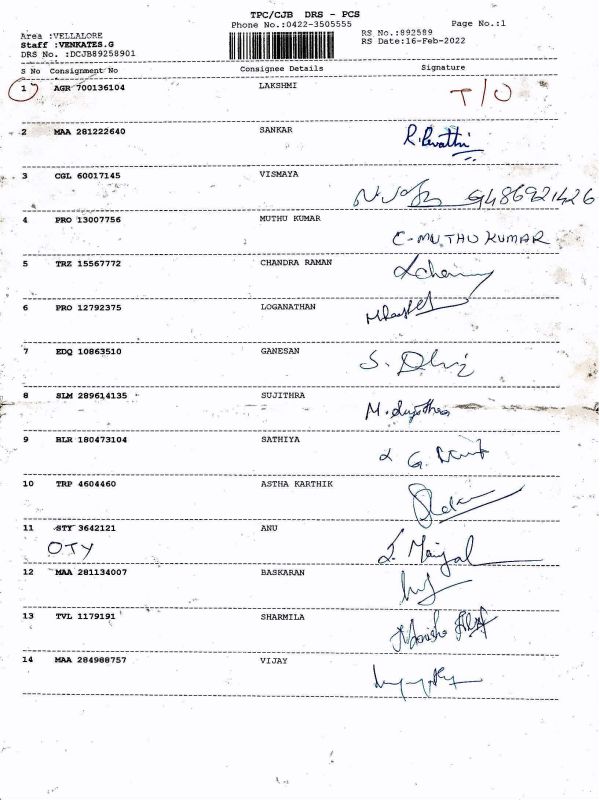 TPC/CJB DRS - PCS
Phone No.:0422-3505555 Page No.:1
Area :VELLALORE RS No.:892589
Staff :VENKATES.G RS Date:16-Feb-2022
DRS No. :DCJB89258901
S No Consignment No Consignee Details Signature
1 AGR 700136104 LAKSHMI T/O
2 MAA 281222640 SANKAR R.Revathi
3 CGL 60017145 VISMAYA 9486921426
4 PRO 13007756 MUTHU KUMAR C-MUTHU KUMAR
5 TRZ 15567772 CHANDRA RAMAN
6 PRO 12792375 LOGANATHAN
7 EDQ 10863510 GANESAN
8 SLM 289614135 SUJITHRA M.Sujithra
9 BLR 180473104 SATHIYA
10 TRP 4604460 ASTHA KARTHIK
11 STY 3642121 ANU
OTY
12 MAA 281134007 BASKARAN
13 TVL 1179191 SHARMILA
14 MAA 284988757 VIJAY